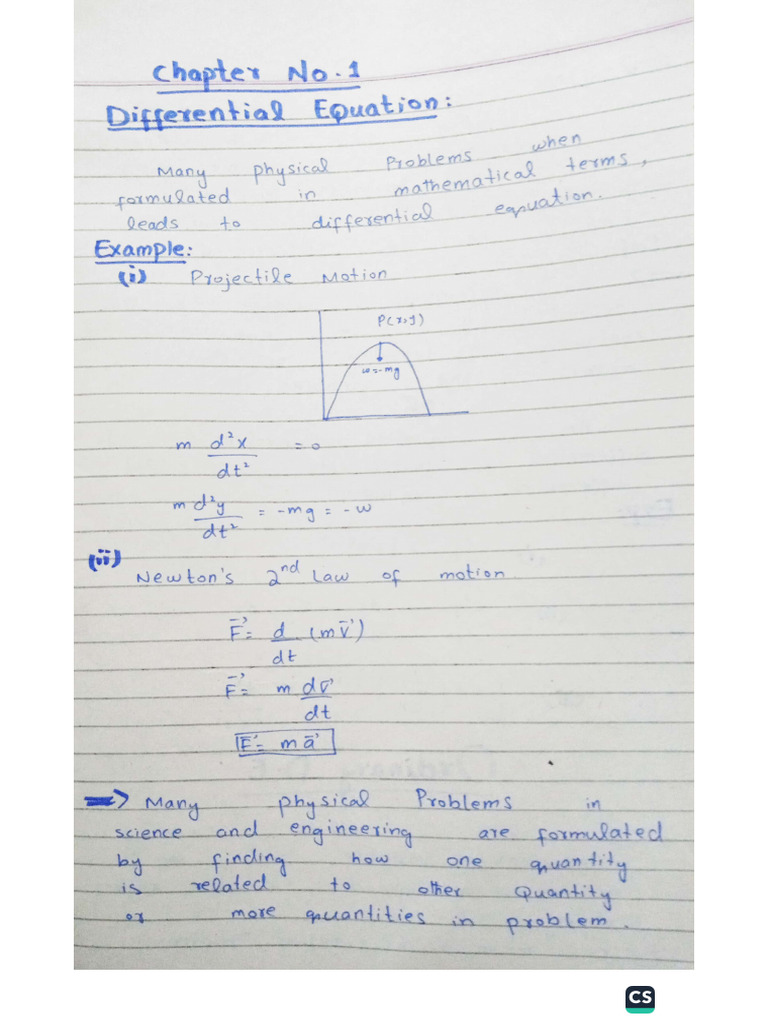 Chapter No.1
Differential Equation:
Many physical Problems when
formulated in mathematical terms,
leads to differential equation.
Example:
(i) Projectile Motion
P(x,y)
w=-mg
m d²x/dt² = 0
m d²y/dt² = -mg = -w
(ii)
Newton's 2nd Law of motion
F⃗ = d/dt (mv⃗)
F⃗ = m dv⃗/dt
F⃗ = ma⃗
⇒ Many physical Problems in
science and engineering are formulated
by finding how one quantity
is related to other Quantity
or more quantities in problem.
CS